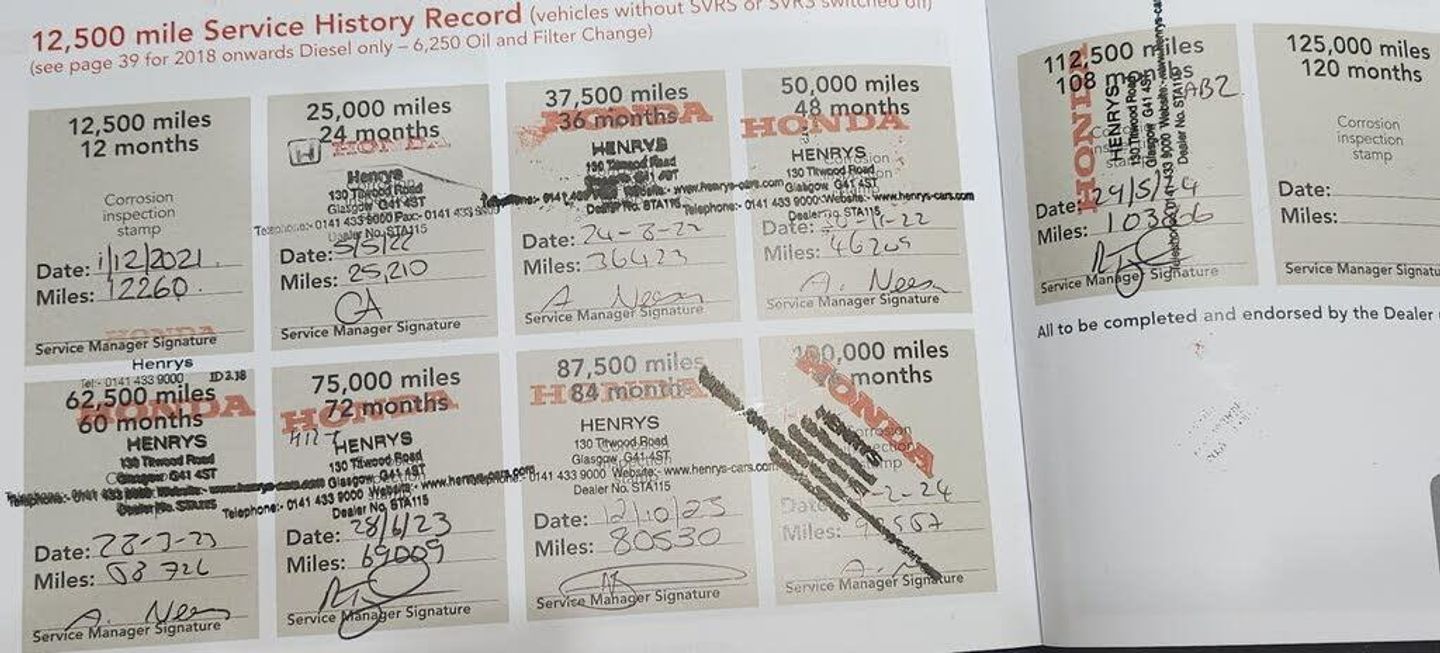 12,500 mile Service History Record (vehicles without SVRS or SVRS switched off)
(see page 39 for 2018 onwards Diesel only – 6,250 Oil and Filter Change)
12,500 miles
12 months
Corrosion
inspection
stamp
Date: 1/12/2021.
Miles: 12260.
HONDA
Service Manager Signature
Henrys
Tel:- 0141 433 9000 ID 3.18
25,000 miles
24 months
HONDA
Henrys
130 Titwood Road
Glasgow G41 4ST
Telephone:- 0141 433 9000 Fax:- 0141 433
Dealer No. STA115
Date: 5/5/22
Miles: 25,210
CA
Service Manager Signature
37,500 miles
36 months
HONDA
HENRYS
130 Titwood Road
G41 4ST
Telephone:- 0141 Website:- www.henrys-cars.com
Dealer No. STA115
Date: 24-8-22
Miles: 36423
A. Neeson
Service Manager Signature
50,000 miles
48 months
HONDA
HENRYS
Corrosion
130 Titwood Road
Glasgow G41 4ST
Telephone:- 0141 433 9000 Website:- www.henrys-cars.com
Dealer No. STA115
Date: -11-22
Miles: 46209
A. Neeson
Service Manager Signature
62,500 miles
60 months
HONDA
HENRYS
130 Titwood Road
Glasgow G41 4ST
Telephone:- 0141 433 9000 Website:- www.henrys-cars.com
Dealer No. STA115
Date: 28-3-23
Miles: 58 726
A. Nees
Service Manager Signature
75,000 miles
72 months
HONDA
HENRYS
130 Titwood Road
Glasgow G41 4ST
Telephone:- 0141 433 9000 Website:- www.henrys-cars.com
Dealer No. STA115
Date: 28/6/23
Miles: 69009
Service Manager Signature
87,500 miles
84 months
HONDA
HENRYS
130 Titwood Road
Glasgow G41 4ST
0141 433 9000 Website:- www.henrys-cars.com
Dealer No. STA115
Date: 12/10/23
Miles: 80530
Service Manager Signature
100,000 miles
months
HONDA
HENRYS
Corrosion
Date: -2-24
Miles:
Service Manager Signature
112,500 miles
108 months
ABZ
HONDA
HENRYS
130 Titwood Road
Glasgow G41 4ST
433 9000 Website:- www.henrys-cars
Dealer No. STA115
Date: 29/5/24
Miles: 103866
Service Manager Signature
125,000 miles
120 months
Corrosion
inspection
stamp
Date:
Miles:
Service Manager Signatu
All to be completed and endorsed by the Dealer